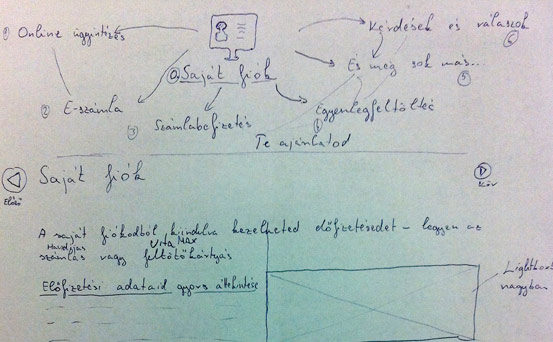 1 Online ügyintézés
Kérdések és válaszok
6
@ Saját fiók
És még sok más...
5
2 E-számla
3 Számlabefizetés
Egyenlegfeltöltés
4
Te ajánlatod
Saját fiók
Előző
Köv
A saját fiókodból kiindulva kezelheted előfizetésedet – legyen az
Havidíjas Vita MAX
számlás vagy feltöltőkártyás
Előfizetési adataid gyors áttekintése
Lightbox
nagyban